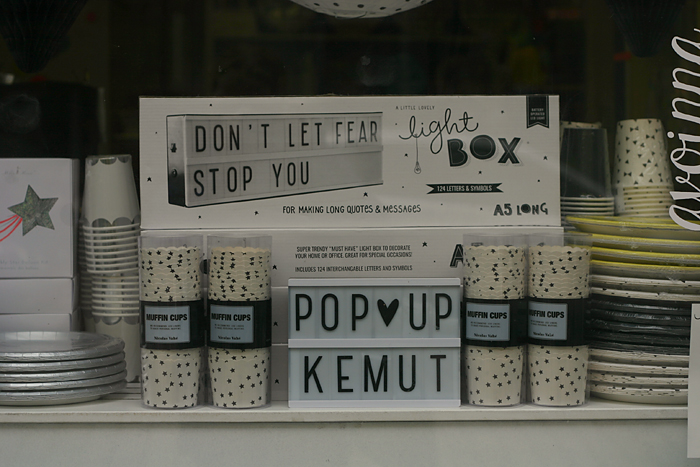 avoinna
A LITTLE LOVELY
light
BOX
DON'T LET FEAR
STOP YOU
124 LETTERS & SYMBOLS
FOR MAKING LONG QUOTES & MESSAGES
A5 LONG
SUPER TRENDY "MUST HAVE" LIGHT BOX TO DECORATE
YOUR HOME OR OFFICE. GREAT FOR SPECIAL OCCASIONS!
INCLUDES 124 INTERCHANGEABLE LETTERS AND SYMBOLS
A
MUFFIN CUPS
MUFFIN CUPS
MUFFIN CUPS
MUFFIN CUPS
POP♥UP
KEMUT